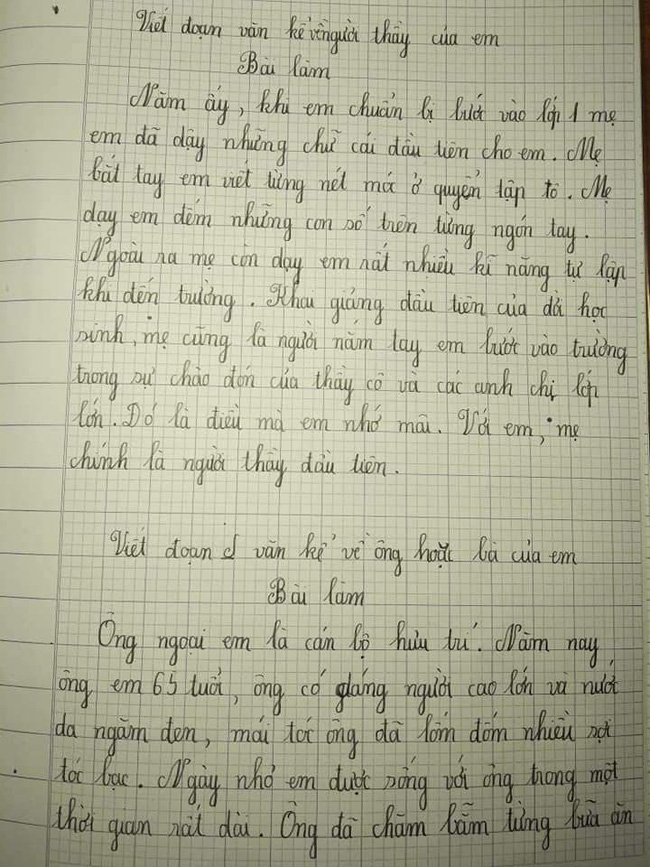 Viết đoạn văn kể về người thầy của em
Bài làm
Năm ấy, khi em chuẩn bị bước vào lớp 1 mẹ
em đã dạy những chữ cái đầu tiên cho em. Mẹ
bắt tay em viết từng nét mới ở quyển tập tô. Mẹ
dạy em đếm những con số trên từng ngón tay.
Ngoài ra mẹ còn dạy em rất nhiều kĩ năng tự lập
khi đến trường. Khai giảng đầu tiên của đời học
sinh, mẹ cũng là người nắm tay em bước vào trường
trong sự chào đón của thầy cô và các anh chị lớp
lớn. Đó là điều mà em nhớ mãi. Với em, mẹ
chính là người thầy đầu tiên.
Viết đoạn văn kể về ông hoặc bà của em
Bài làm
Ông ngoại em là cán bộ hưu trí. Năm nay
ông em 65 tuổi, ông có dáng người cao lớn và nước
da ngăm đen, mái tóc ông đã lốm đốm nhiều sợi
tóc bạc. Ngày nhỏ em được sống với ông trong một
thời gian rất dài. Ông đã chăm bẵm từng bữa ăn